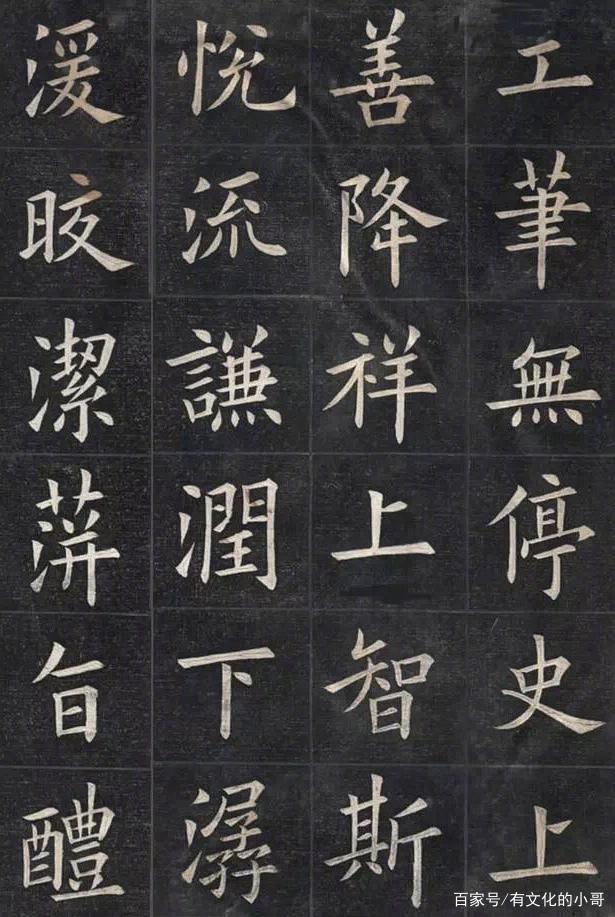 工筆無停史上
善降祥上智斯
悅流謙潤下潺
湲晈潔蓱旨醴
百家号/有文化的小哥